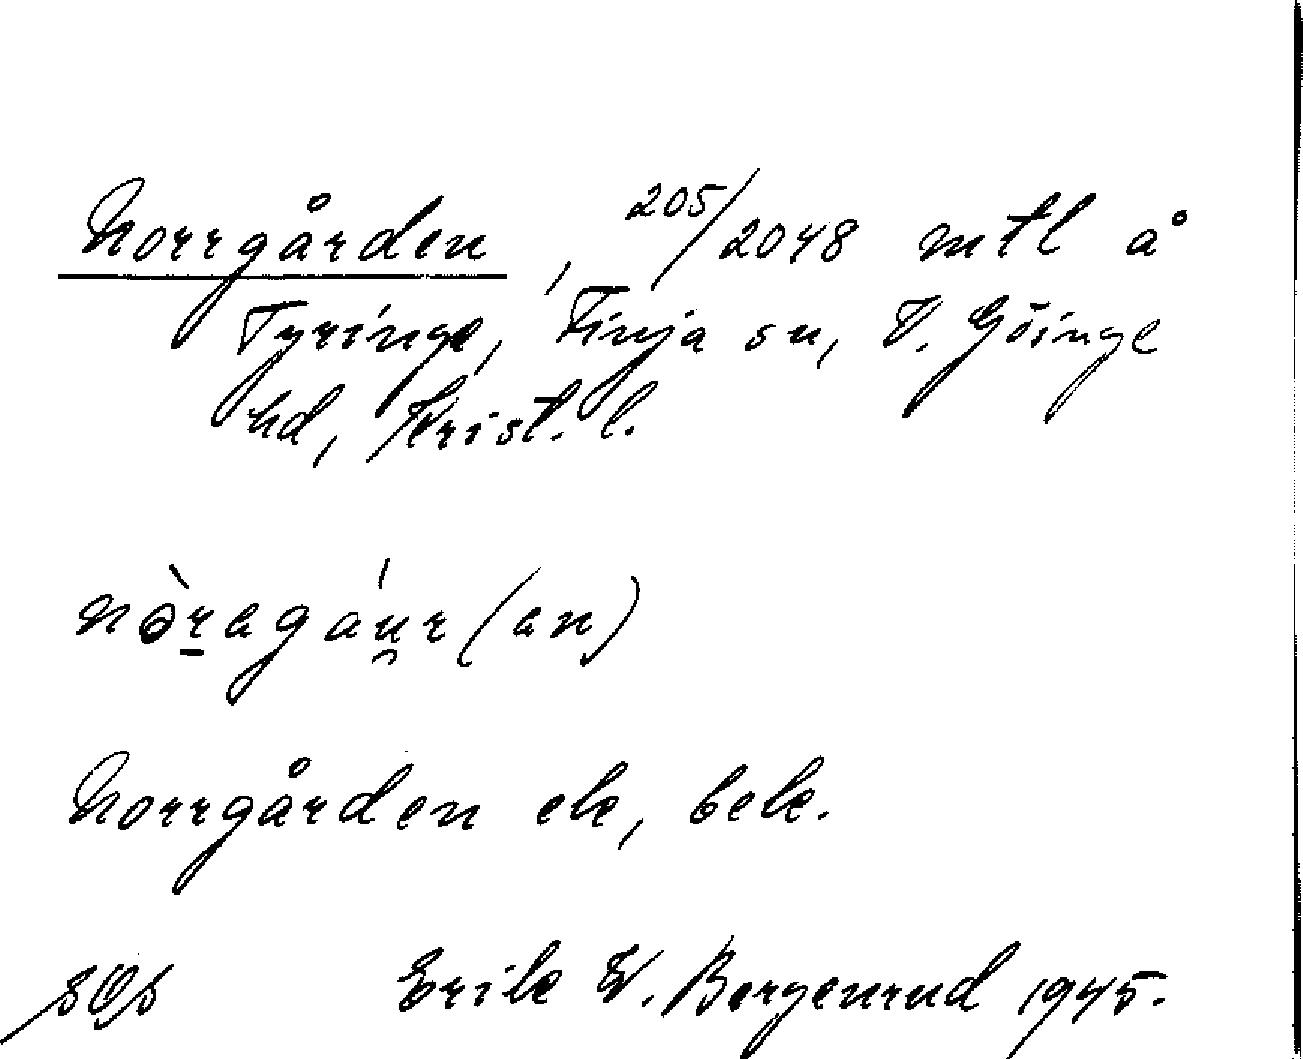 Norrgården, 205/2048 mtl å
Tyringe, Finja sn, V. Göinge
hd, Krist. l.
nòragáu̯r(an)
Norrgården ek, bek.
Erik W. Bergenrud 1945.